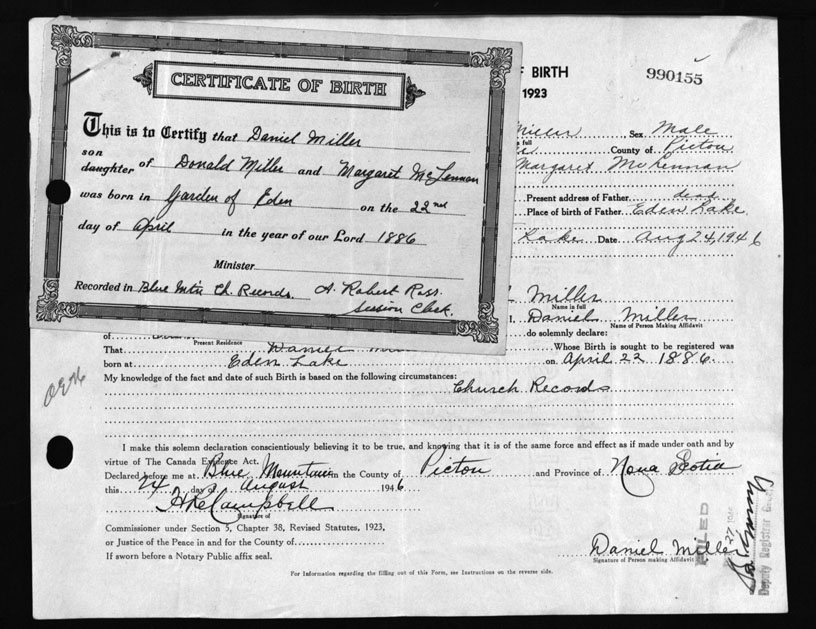 CERTIFICATE OF BIRTH
This is to Certify that Daniel Miller
son
daughter of Donald Miller and Margaret McLennan
was born in Garden of Eden on the 22nd
day of April in the year of our Lord 1886
Minister
Recorded in Blue Mtn Ch. Records. A. Robert Ross.
Session Clerk.
F BIRTH
990155
Pictou
1923
Miller , Sex Male
in full
County of Pictou
Margaret McLennan
Present address of Father dead
Place of birth of Father Eden Lake
Lake Date Aug 24, 1946
Miller
Name in full
I, Daniel Miller
Name of Person Making Affidavit
of do solemnly declare:
Present Residence
That Daniel Whose Birth is sought to be registered was
born at Eden Lake on April 22 1886.
My knowledge of the fact and date of such Birth is based on the following circumstances:
Church Records
I make this solemn declaration conscientiously believing it to be true, and knowing that it is of the same force and effect as if made under oath and by
virtue of The Canada Evidence Act.
Declared before me at Blue Mountain in the County of Pictou and Province of Nova Scotia
this 24 day of August 1946
Campbell
Signature of
Commissioner under Section 5, Chapter 38, Revised Statutes, 1923,
or Justice of the Peace in and for the County of
If sworn before a Notary Public affix seal.
Daniel Miller
Signature of Person making Affidavit
FILED
27
Deputy Registrar
For Information regarding the filling out of this Form, see Instructions on the reverse side.